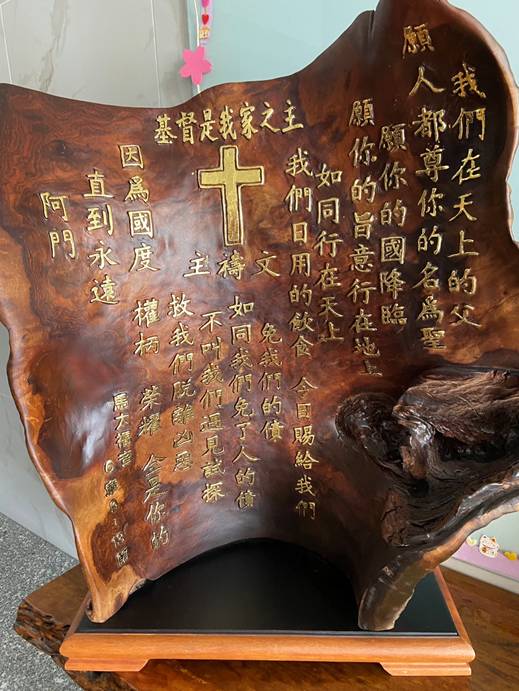 基督是我家之主
主禱文
我們在天上的父
願人都尊你的名為聖
願你的國降臨
願你的旨意行在地上
如同行在天上
我們日用的飲食 今日賜給我們
免我們的債
如同我們免了人的債
不叫我們遇見試探
救我們脫離凶惡
因為國度 權柄 榮耀 全是你的
直到永遠
阿門
馬太福音